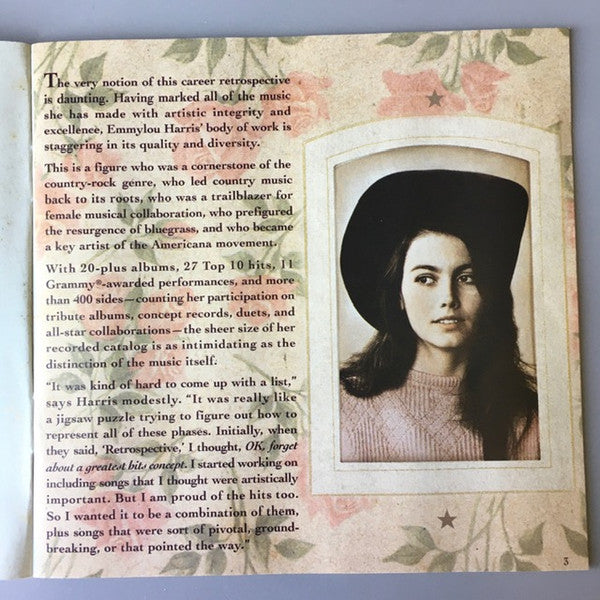 The very notion of this career retrospective
is daunting. Having marked all of the music
she has made with artistic integrity and
excellence, Emmylou Harris' body of work is
staggering in its quality and diversity.
This is a figure who was a cornerstone of the
country-rock genre, who led country music
back to its roots, who was a trailblazer for
female musical collaboration, who prefigured
the resurgence of bluegrass, and who became
a key artist of the Americana movement.
With 20-plus albums, 27 Top 10 hits, 11
Grammy®-awarded performances, and more
than 400 sides—counting her participation on
tribute albums, concept records, duets, and
all-star collaborations—the sheer size of her
recorded catalog is as intimidating as the
distinction of the music itself.
"It was kind of hard to come up with a list,"
says Harris modestly. "It was really like
a jigsaw puzzle trying to figure out how to
represent all of these phases. Initially, when
they said, 'Retrospective,' I thought, OK, forget
about a greatest hits concept. I started working on
including songs that I thought were artistically
important. But I am proud of the hits too.
So I wanted it to be a combination of them,
plus songs that were sort of pivotal, ground-
breaking, or that pointed the way."
3